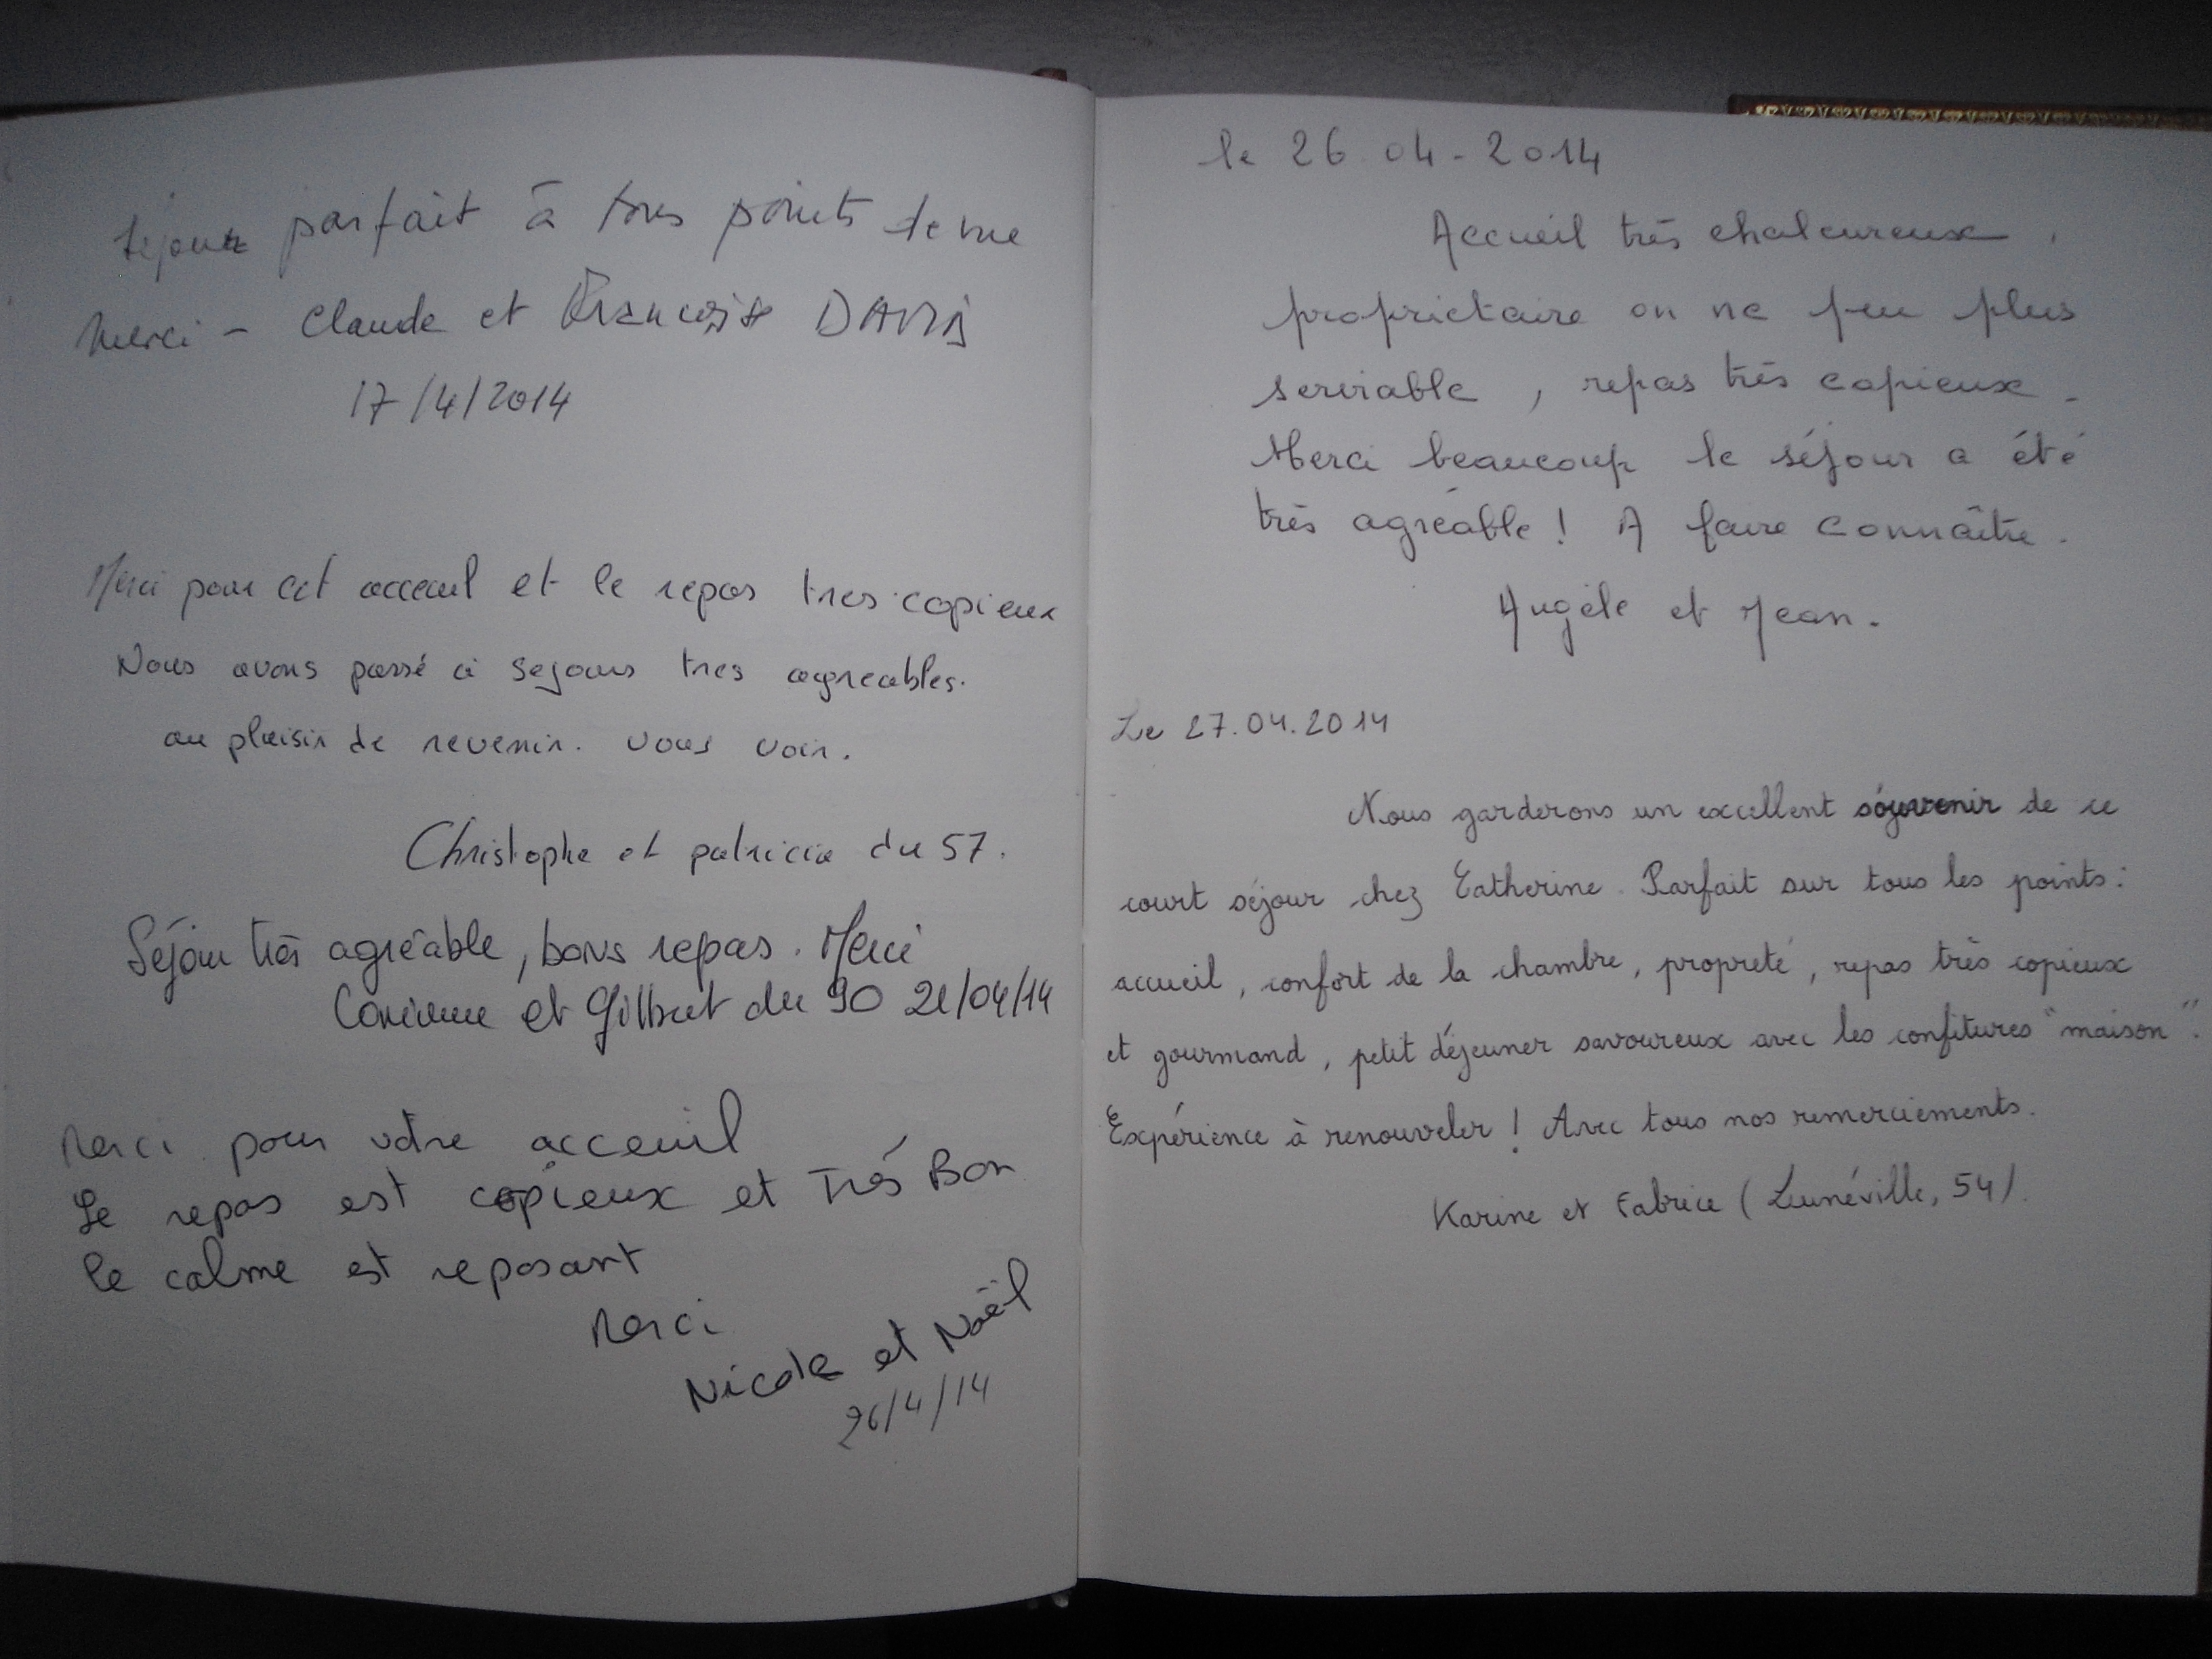 séjour parfait à tous points de vue
Merci - Claude et Françoise
17/4/2014
Merci pour cet acceuil et le repas tres copieux
Nous avons passé ci sejours tres agreables.
au plaisir de revenir. vous voir.
Christophe et patricia du 57.
Séjour très agréable, bons repas. Merci
Corinne et Gilbert du 90 21/04/14
Merci pour votre acceuil
Le repas est copieux et Trés Bon
le calme est reposant
Merci
Nicole et Noël
26/4/14
le 26.04-2014
Accueil très chaleureux,
proprietaire on ne peu plus
serviable, repas très copieux.
Merci beaucoup le séjour a été
très agréable ! A faire connaître.
Angèle et Jean.
Le 27.04.2014
Nous garderons un excellent souvenir de ce
court séjour chez Catherine. Parfait sur tous les points :
accueil, confort de la chambre, propreté, repas très copieux
et gourmand, petit déjeuner savoureux avec les confitures "maison".
Expérience à renouveler ! Avec tous nos remerciements.
Karine et Fabrice (Lunéville, 54).